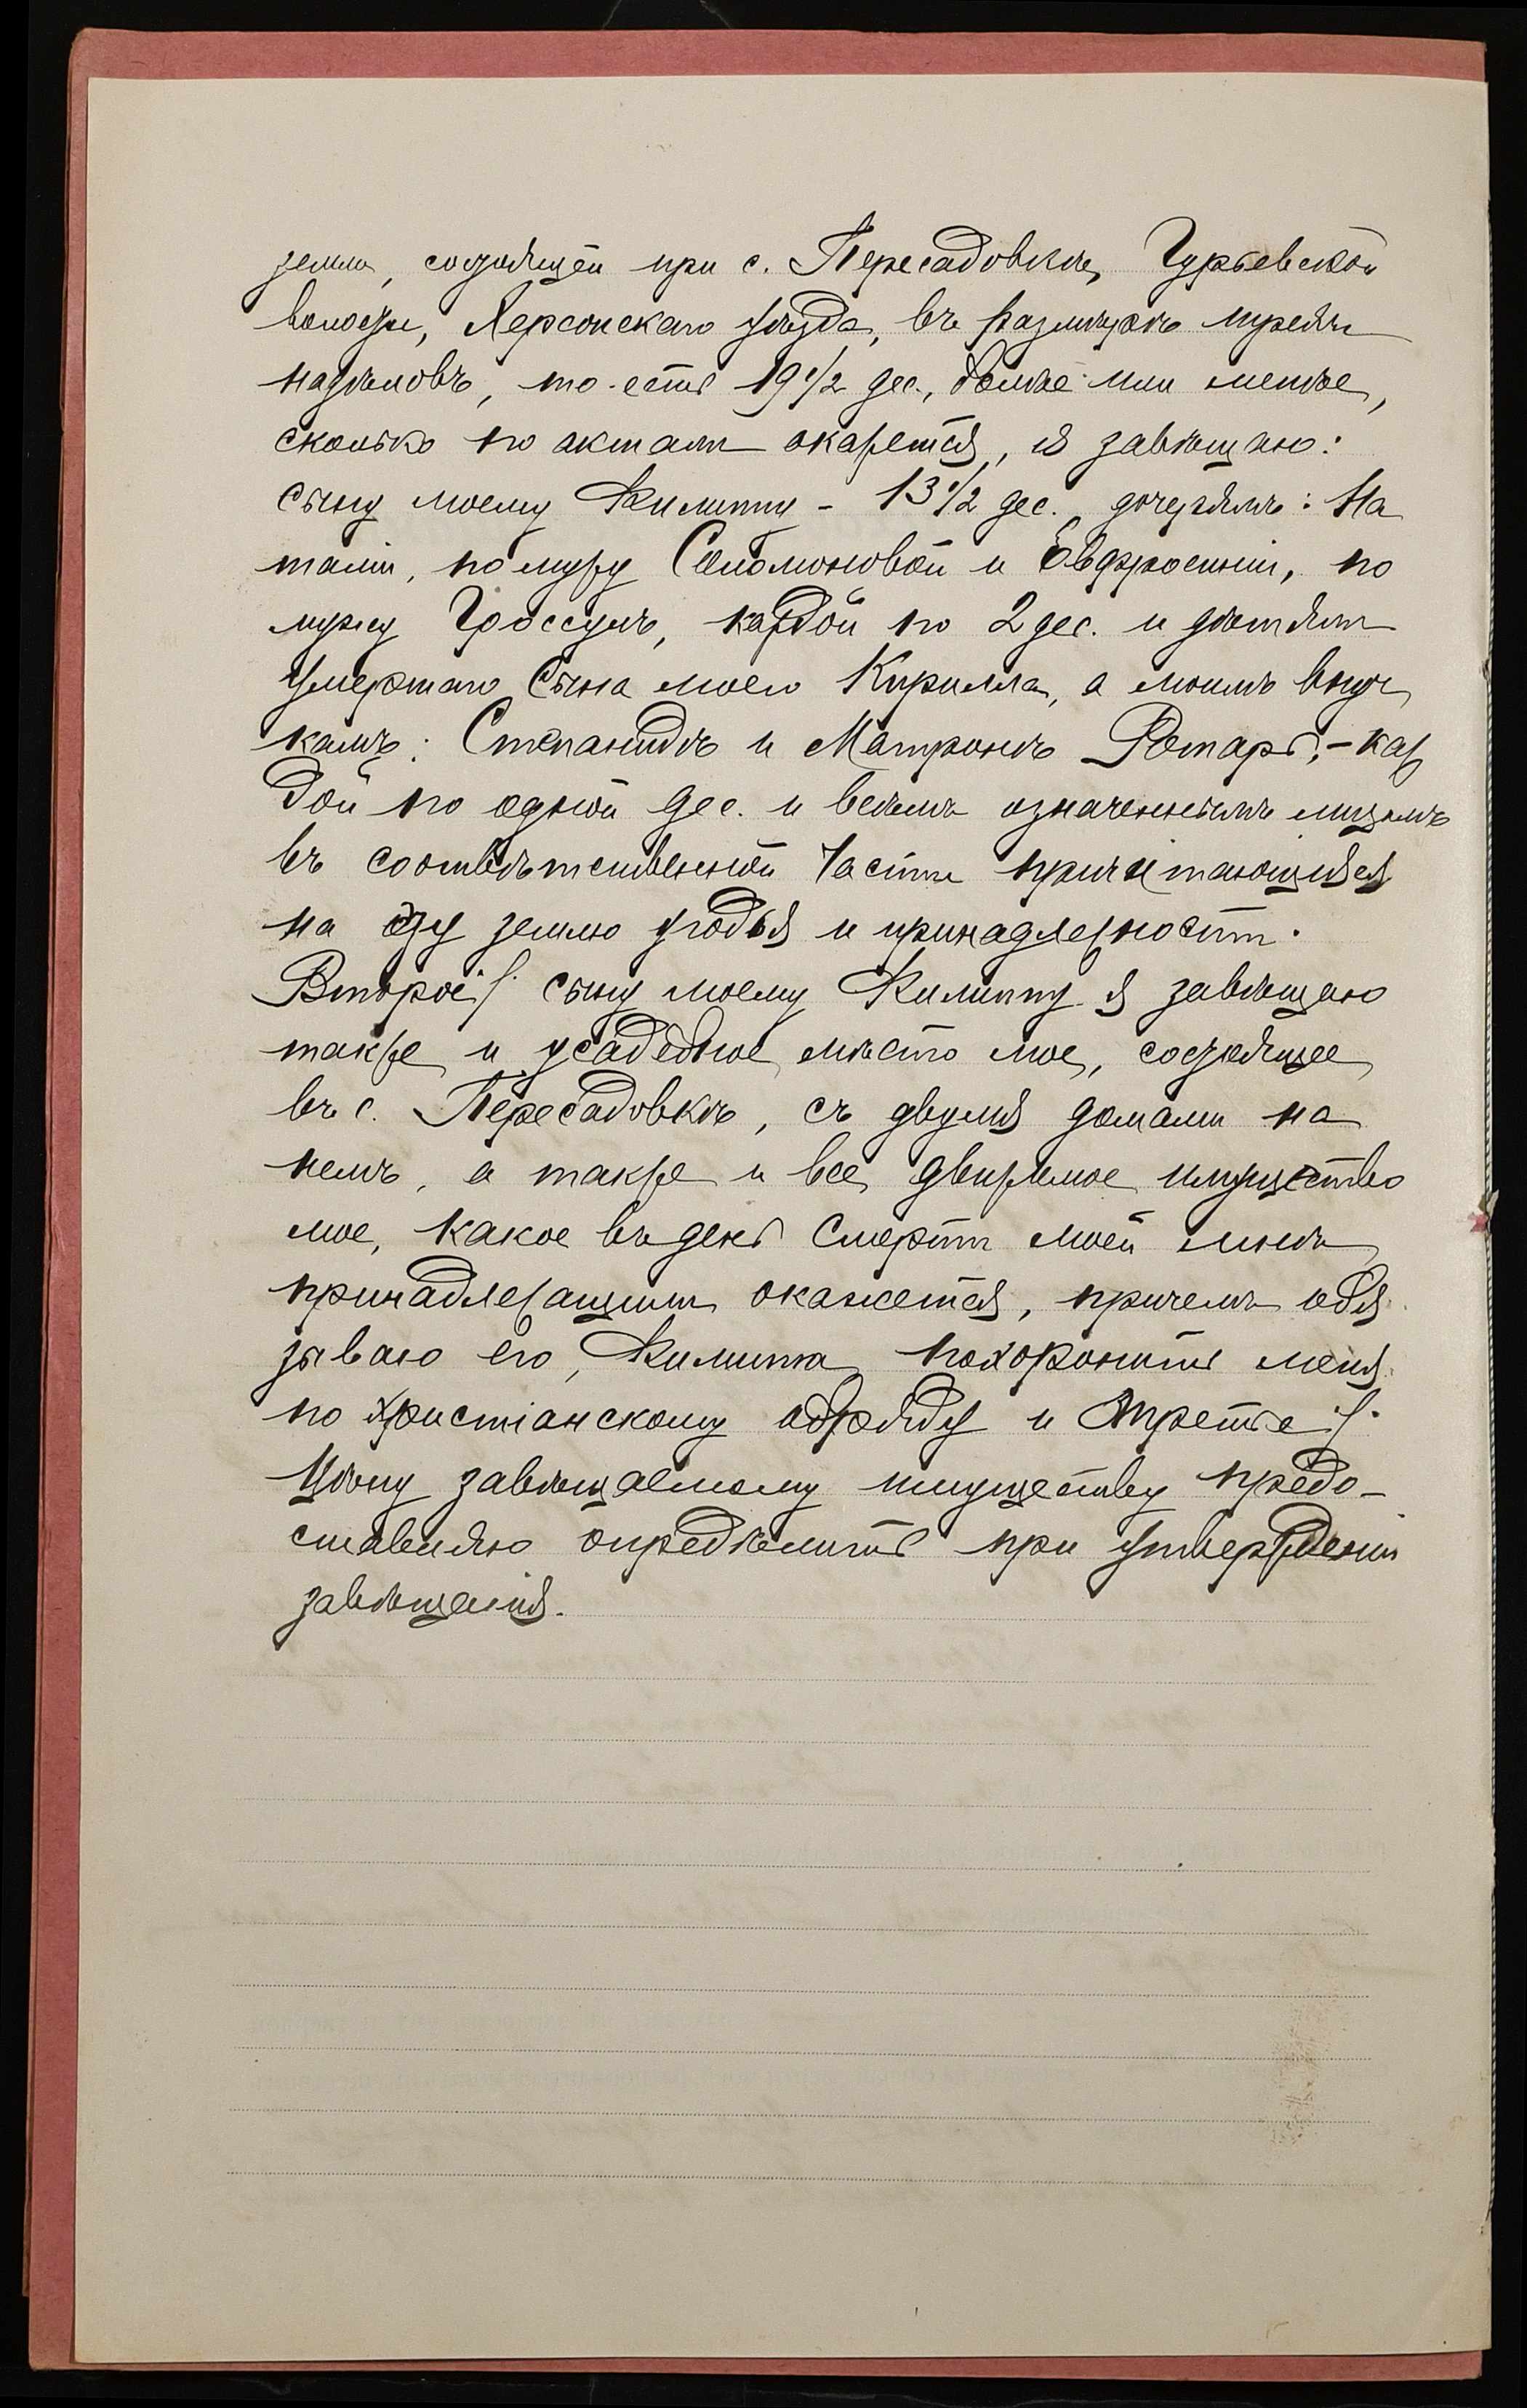 земли, состоящей при с. Пересадовкѣ, Гурьевской
волости, Херсонскаго уѣзда, въ размѣрѣ трехъ
надѣловъ, то-есть 19 1/2 дес., болѣе или менѣе,
сколько по актамъ окажется, я завѣщаю:
сыну моему Филиппу - 13 1/2 дес., дочерямъ: На
таліи, по мужу Соломоновой и Евфросиніи, по
мужу Гроссулъ, каждой по 2 дес. и дѣтямъ
умершаго сына моего Кирилла, а моимъ внуч
камъ: Степанидѣ и Матронѣ Ротарь, - каж
дой по одной дес. и всѣмъ означеннымъ лицамъ
въ соотвѣтственной части причитающіяся
на эту землю угодья и принадлежности.
Второе/. сыну моему Филиппу я завѣщаю
также и усадебное мѣсто мое, состоящее
въ с. Пересадовкѣ, съ двумя домами на
немъ, а также и все движимое имущество
мое, какое въ день смерти моей мнѣ
принадлежащимъ окажется, причемъ обя
зываю его, Филиппа похоронить меня
по христіанскому обряду и Третье/.
Цѣну завѣщаемому имуществу предо-
ставляю опредѣлить при утвержденіи
завѣщанія.